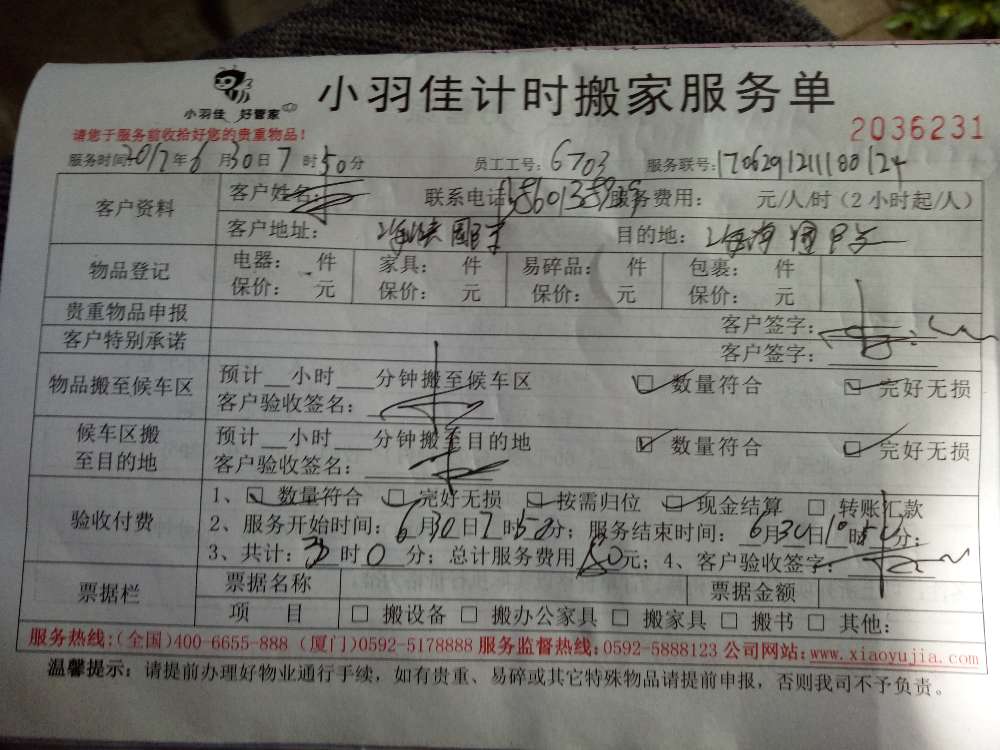 小羽佳 好管家
小羽佳计时搬家服务单
请您于服务前收拾好您的贵重物品！
2036231
服务时间2017年6月30日7时50分 员工工号：6703 服务联号：170629121180124
客户资料 客户姓名： 联系电话 服务费用： 元/人/时（2小时起/人）
客户地址： 目的地：
物品登记 电器： 件 家具： 件 易碎品： 件 包裹： 件
保价： 元 保价： 元 保价： 元 保价： 元
贵重物品申报 客户签字：
客户特别承诺 客户签字：
物品搬至候车区 预计__小时___分钟搬至候车区 ☑数量符合 ☑完好无损
客户验收签名：
候车区搬至目的地 预计__小时___分钟搬至目的地 ☑数量符合 ☑完好无损
客户验收签名：
验收付费 1、☑数量符合 ☑完好无损 ☑按需归位 ☑现金结算 □转账汇款
2、服务开始时间：6月30日7时50分；服务结束时间：6月30日10时50分；
3、共计：3时0分；总计服务费用 元；4、客户验收签字：
票据栏 票据名称 票据金额
项 目 □搬设备 □搬办公家具 □搬家具 □搬书 □其他：
服务热线：(全国)400-6655-888 (厦门)0592-5178888 服务监督热线：0592-5888123 公司网站：www.xiaoyujia.com
温馨提示：请提前办理好物业通行手续，如有贵重、易碎或其它特殊物品请提前申报，否则我司不予负责。